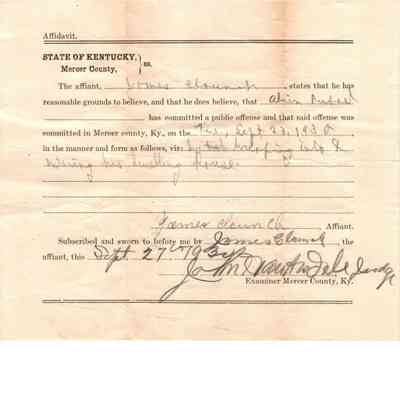 Affidavit.
STATE OF KENTUCKY,
Mercer County, } ss.
The affiant, James Clounch states that he has
reasonable grounds to believe, and that he does believe, that
has committed a public offense and that said offense was
committed in Mercer county, Ky., on the Sept 23, 1930,
in the manner and form as follows, viz:
dwelling House
James Clounch Affiant.
Subscribed and sworn to before me by James Clounch, the
affiant, this Sept. 27th 193
John Judge
Examiner Mercer County, Ky.